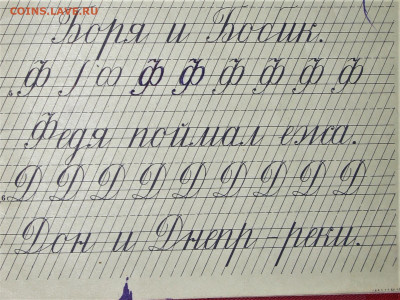 COINS.LAVE.RU
Боря и Босик.
Ф Ф Ф Ф Ф Ф Ф
Федя поймал ежа.
Д Д Д Д Д Д Д Д Д
Дон и Днепр - реки.